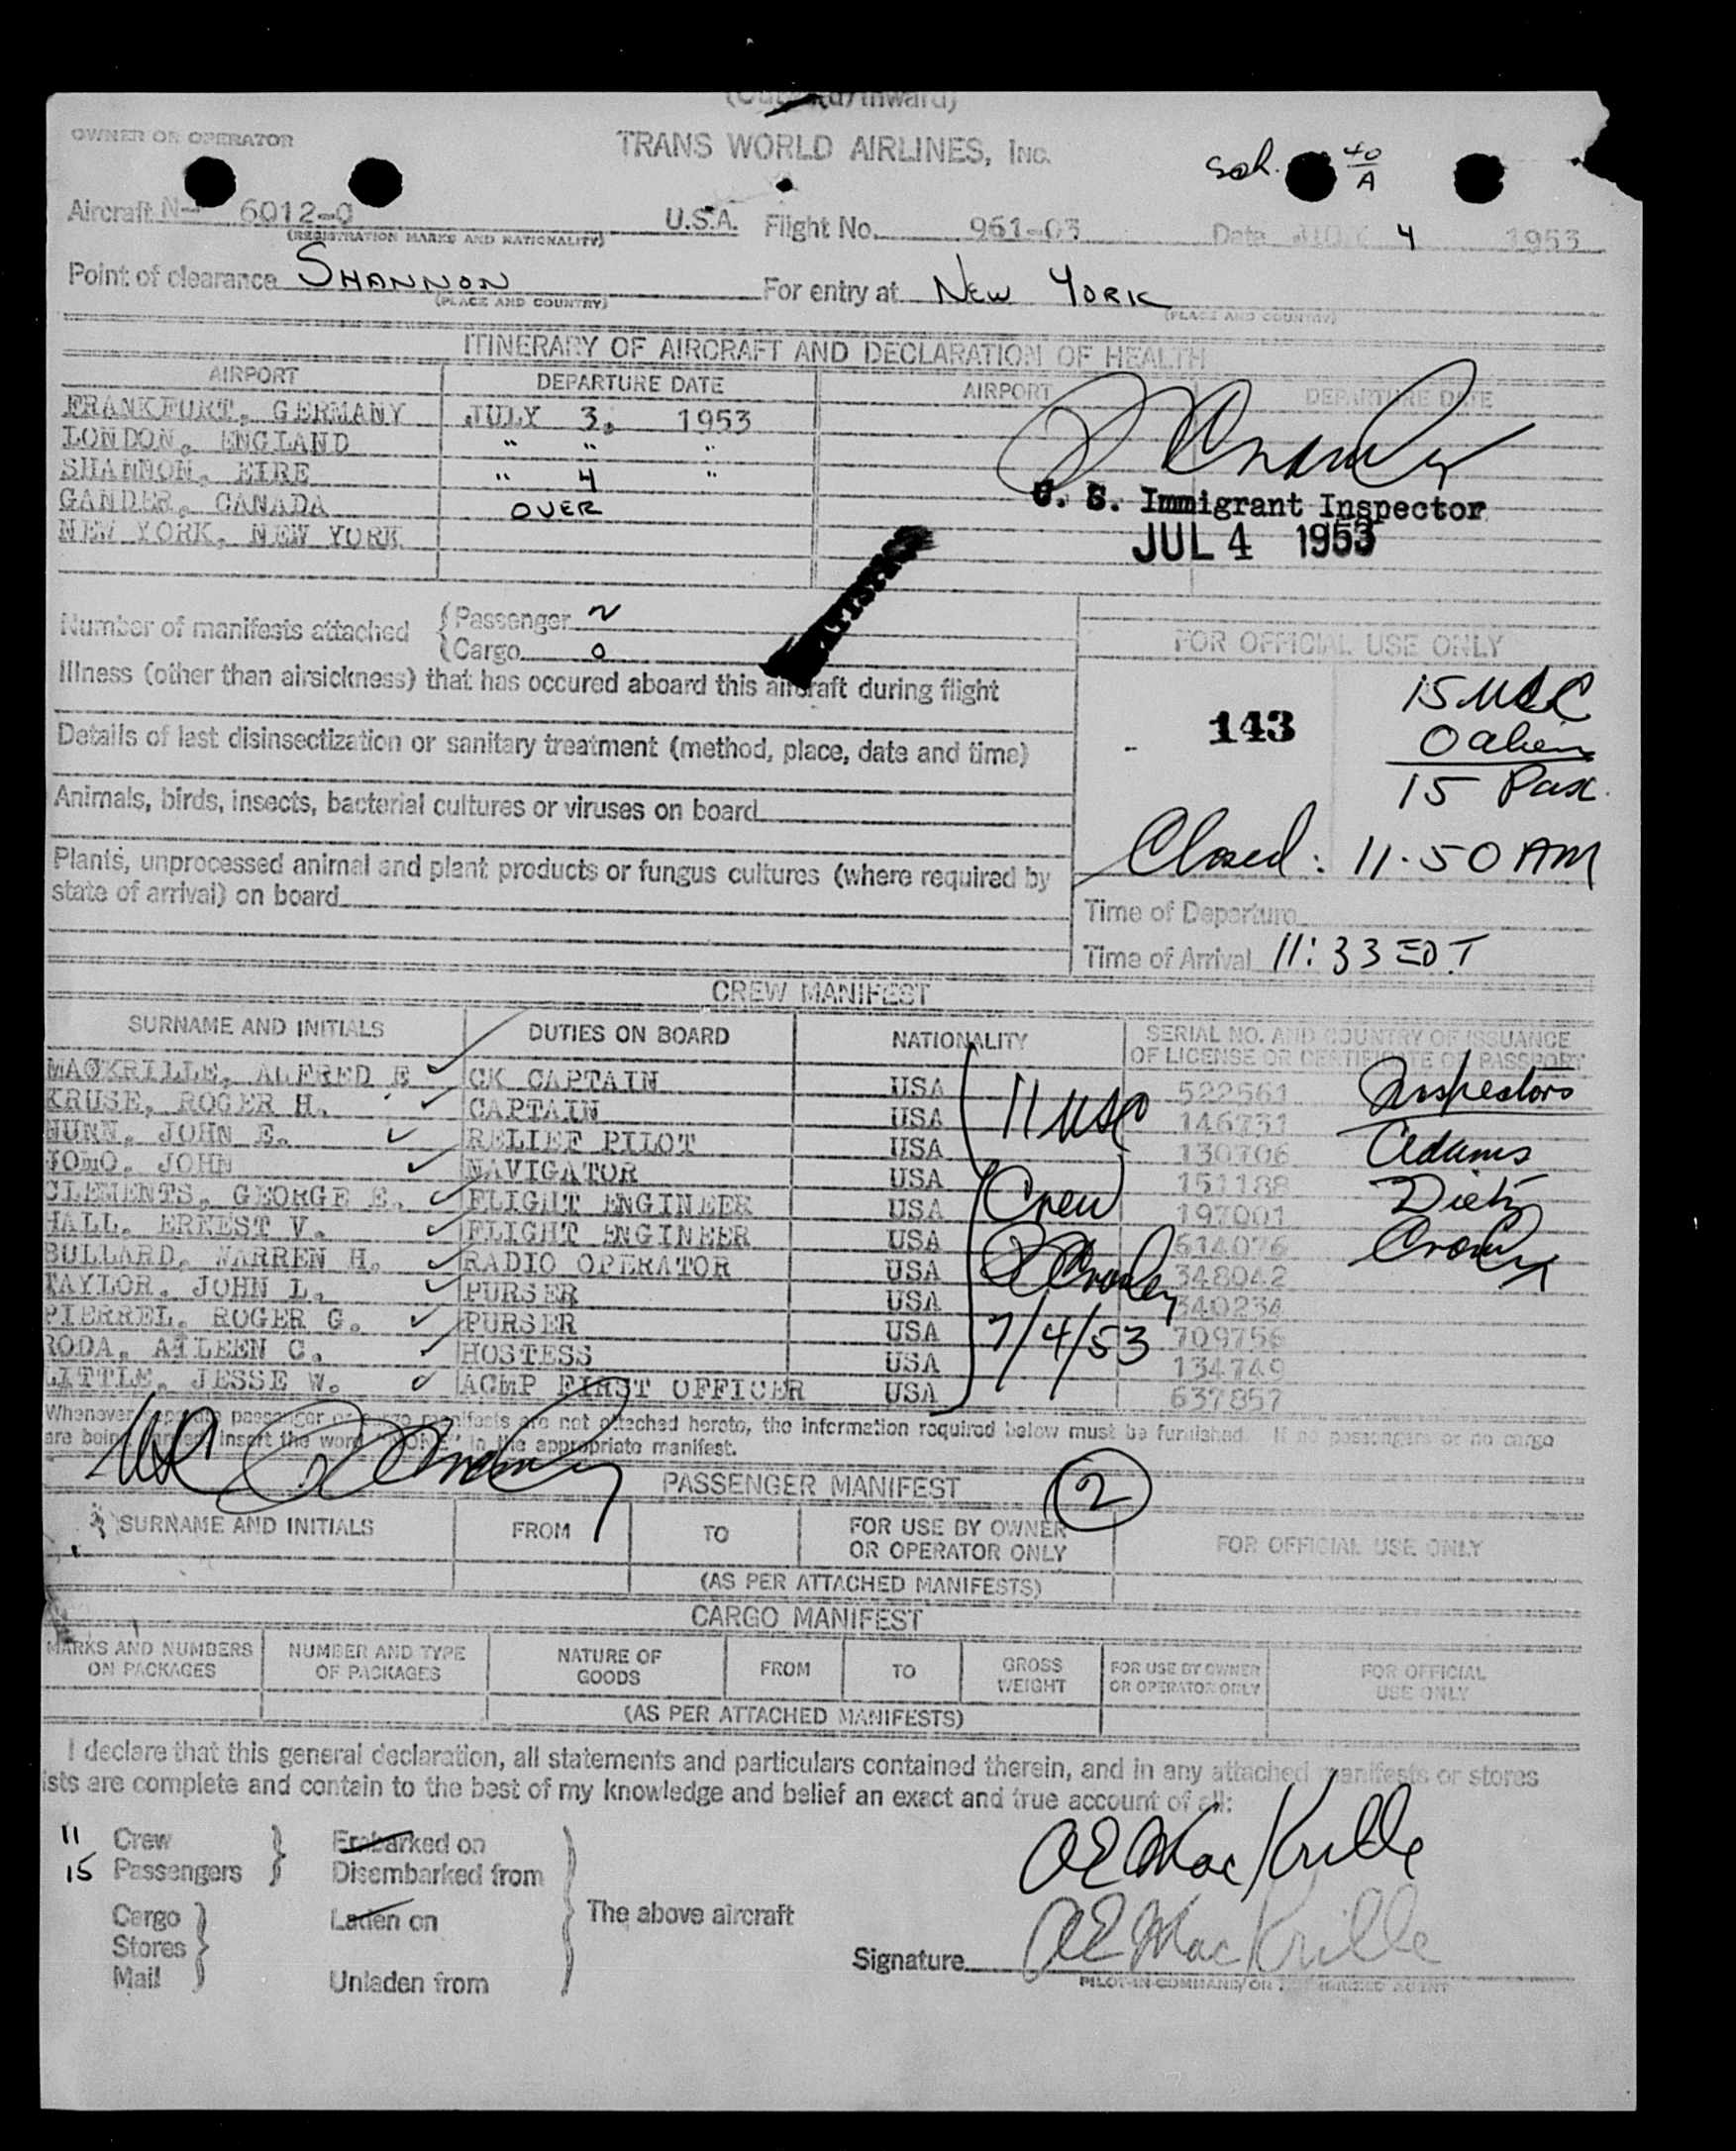 OWNER OR OPERATOR
TRANS WORLD AIRLINES, INC.
Sch. 40/A
Aircraft N- 6012-C U.S.A. Flight No. 961-03 Date JULY 4 1953
(REGISTRATION MARKS AND NATIONALITY)
Point of clearance SHANNON For entry at NEW YORK
(PLACE AND COUNTRY) (PLACE AND COUNTRY)
ITINERARY OF AIRCRAFT AND DECLARATION OF HEALTH
AIRPORT DEPARTURE DATE AIRPORT DEPARTURE DATE
FRANKFURT, GERMANY JULY 3, 1953
LONDON, ENGLAND " " "
SHANNON, EIRE " 4 "
GANDER, CANADA OVER
NEW YORK, NEW YORK
U. S. Immigrant Inspector
JUL 4 1953
Number of manifests attached { Passenger 2
{ Cargo 0
Illness (other than airsickness) that has occured aboard this aircraft during flight
Details of last disinsectization or sanitary treatment (method, place, date and time)
Animals, birds, insects, bacterial cultures or viruses on board
Plants, unprocessed animal and plant products or fungus cultures (where required by
state of arrival) on board
FOR OFFICIAL USE ONLY
143
15 USC
0 alien
15 Pax.
Closed: 11.50 AM
Time of Departure
Time of Arrival 11:33 EDT
CREW MANIFEST
SURNAME AND INITIALS DUTIES ON BOARD NATIONALITY SERIAL NO. AND COUNTRY OF ISSUANCE
OF LICENSE OR CERTIFICATE OR PASSPORT
MACKRILLE, ALFRED E CK CAPTAIN USA 522561
KRUSE, ROGER H. CAPTAIN USA 146731
NUNN, JOHN E. RELIEF PILOT USA 130706
JOHN NAVIGATOR USA 151188
CLEMENTS, GEORGE E. FLIGHT ENGINEER USA 197001
HALL, ERNEST V. FLIGHT ENGINEER USA 614076
BULLARD, WARREN H. RADIO OPERATOR USA 348042
TAYLOR, JOHN L. PURSER USA 340234
PIERREL, ROGER G. PURSER USA 709756
RODA, AILEEN C. HOSTESS USA 134749
LITTLE, JESSE W. ACMP FIRST OFFICER USA 637857
11 USC
Crew
7/4/53
Inspectors
Adams
Dietz
Crowley
Whenever separate passenger or cargo manifests are not attached hereto, the information required below must be furnished. If no passengers or no cargo
are being carried insert the word "NONE" in the appropriate manifest.
PASSENGER MANIFEST 2
SURNAME AND INITIALS FROM TO FOR USE BY OWNER OR OPERATOR ONLY FOR OFFICIAL USE ONLY
(AS PER ATTACHED MANIFESTS)
CARGO MANIFEST
MARKS AND NUMBERS ON PACKAGES NUMBER AND TYPE OF PACKAGES NATURE OF GOODS FROM TO GROSS WEIGHT FOR USE BY OWNER OR OPERATOR ONLY FOR OFFICIAL USE ONLY
(AS PER ATTACHED MANIFESTS)
I declare that this general declaration, all statements and particulars contained therein, and in any attached manifests or stores
ists are complete and contain to the best of my knowledge and belief an exact and true account of all:
11 Crew Embarked on
15 Passengers Disembarked from
Cargo Laden on The above aircraft
Stores
Mail Unladen from
AE MacKrille
Signature AE MacKrille
PILOT-IN-COMMAND OR AUTHORIZED AGENT